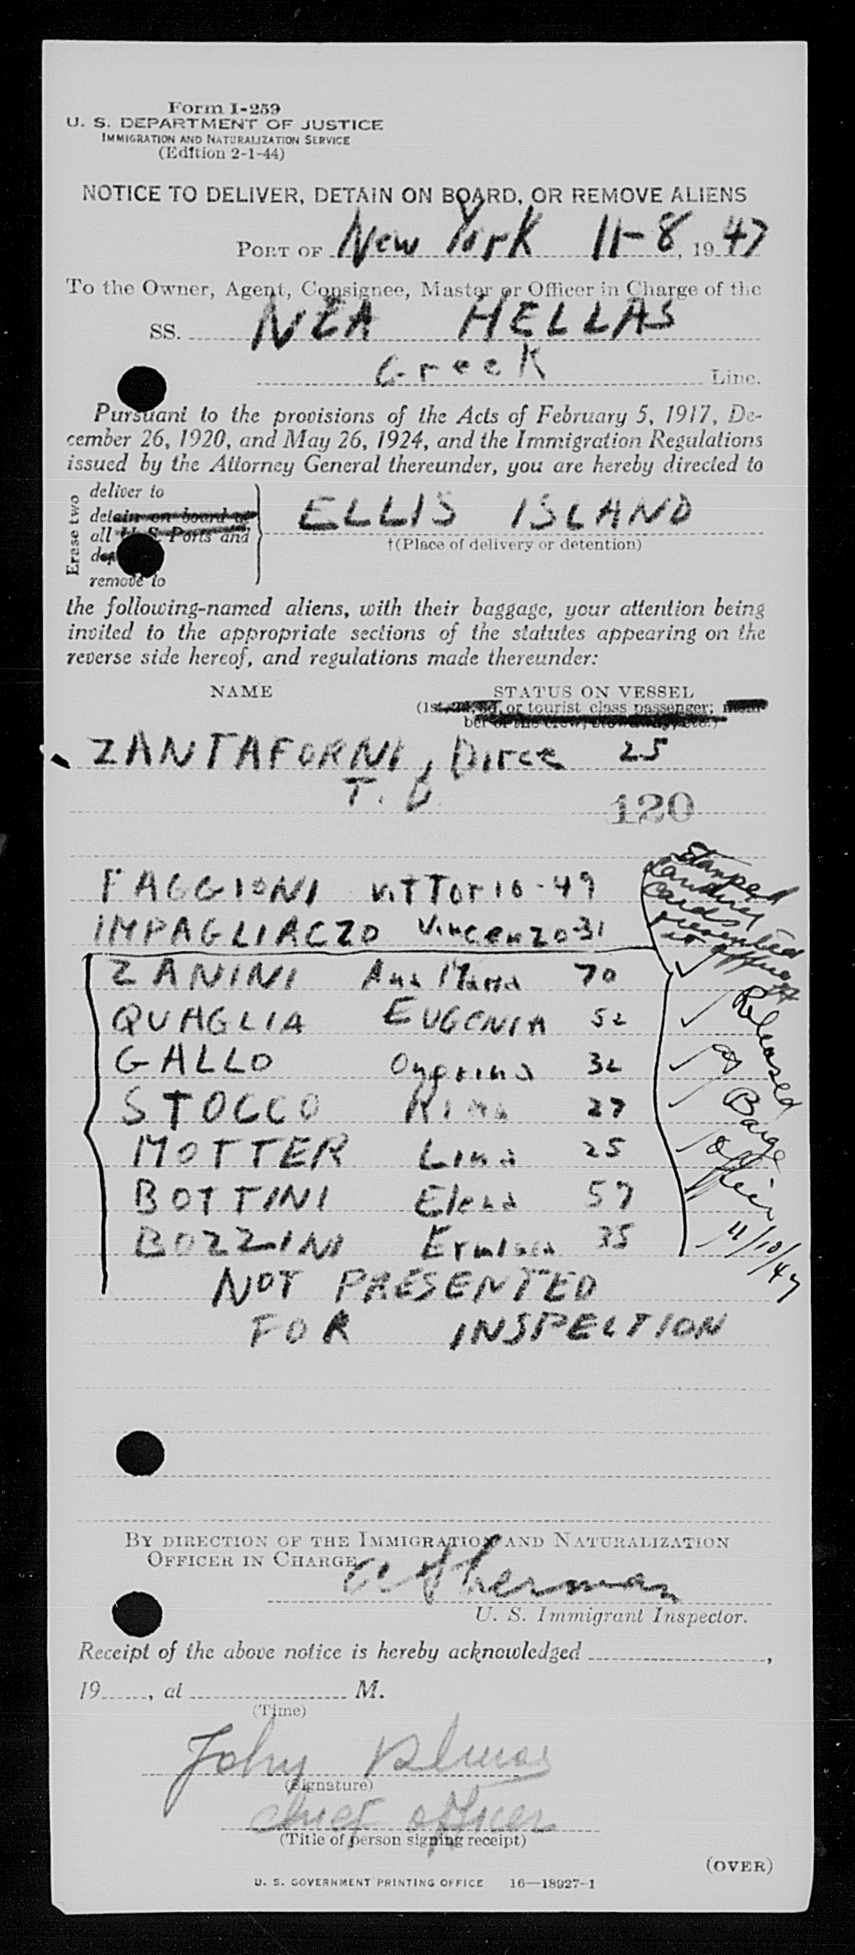 Form I-259
U. S. DEPARTMENT OF JUSTICE
IMMIGRATION AND NATURALIZATION SERVICE
(Edition 2-1-44)
NOTICE TO DELIVER, DETAIN ON BOARD, OR REMOVE ALIENS
PORT OF New York 11-8, 1947
To the Owner, Agent, Consignee, Master or Officer in Charge of the
SS. NEA HELLAS
Greek Line.
Pursuant to the provisions of the Acts of February 5, 1917, De-
cember 26, 1920, and May 26, 1924, and the Immigration Regulations
issued by the Attorney General thereunder, you are hereby directed to
Erase two
deliver to
detain on board at
all U. S. Ports and
remove to
ELLIS ISLAND
†(Place of delivery or detention)
the following-named aliens, with their baggage, your attention being
invited to the appropriate sections of the statutes appearing on the
reverse side hereof, and regulations made thereunder:
NAME STATUS ON VESSEL
(1st, 2d, 3d, or tourist class passenger; mem-
ber of the crew, etc.)
ZANTAFORNI, Dirce 25
T. D.
120
FAGGIONI VITTorio - 49
IMPAGLIACZO Vincenzo-31
Stamped
Landing
Cards
presented
to officer
ZANINI Ana Maria 70
QUAGLIA EUGENIA 52
GALLO 32
STOCCO Rina 27
MOTTER Lina 25
BOTTINI Elena 57
BOZZINI 35
Released
at
Barge
Office
11/10/47
NOT PRESENTED
FOR INSPECTION
BY DIRECTION OF THE IMMIGRATION AND NATURALIZATION
OFFICER IN CHARGE
A Sherman
U. S. Immigrant Inspector.
Receipt of the above notice is hereby acknowledged ,
19 , at M.
(Time)
John
(Signature)
Chief officer
(Title of person signing receipt)
(OVER)
U. S. GOVERNMENT PRINTING OFFICE 16—18927-1